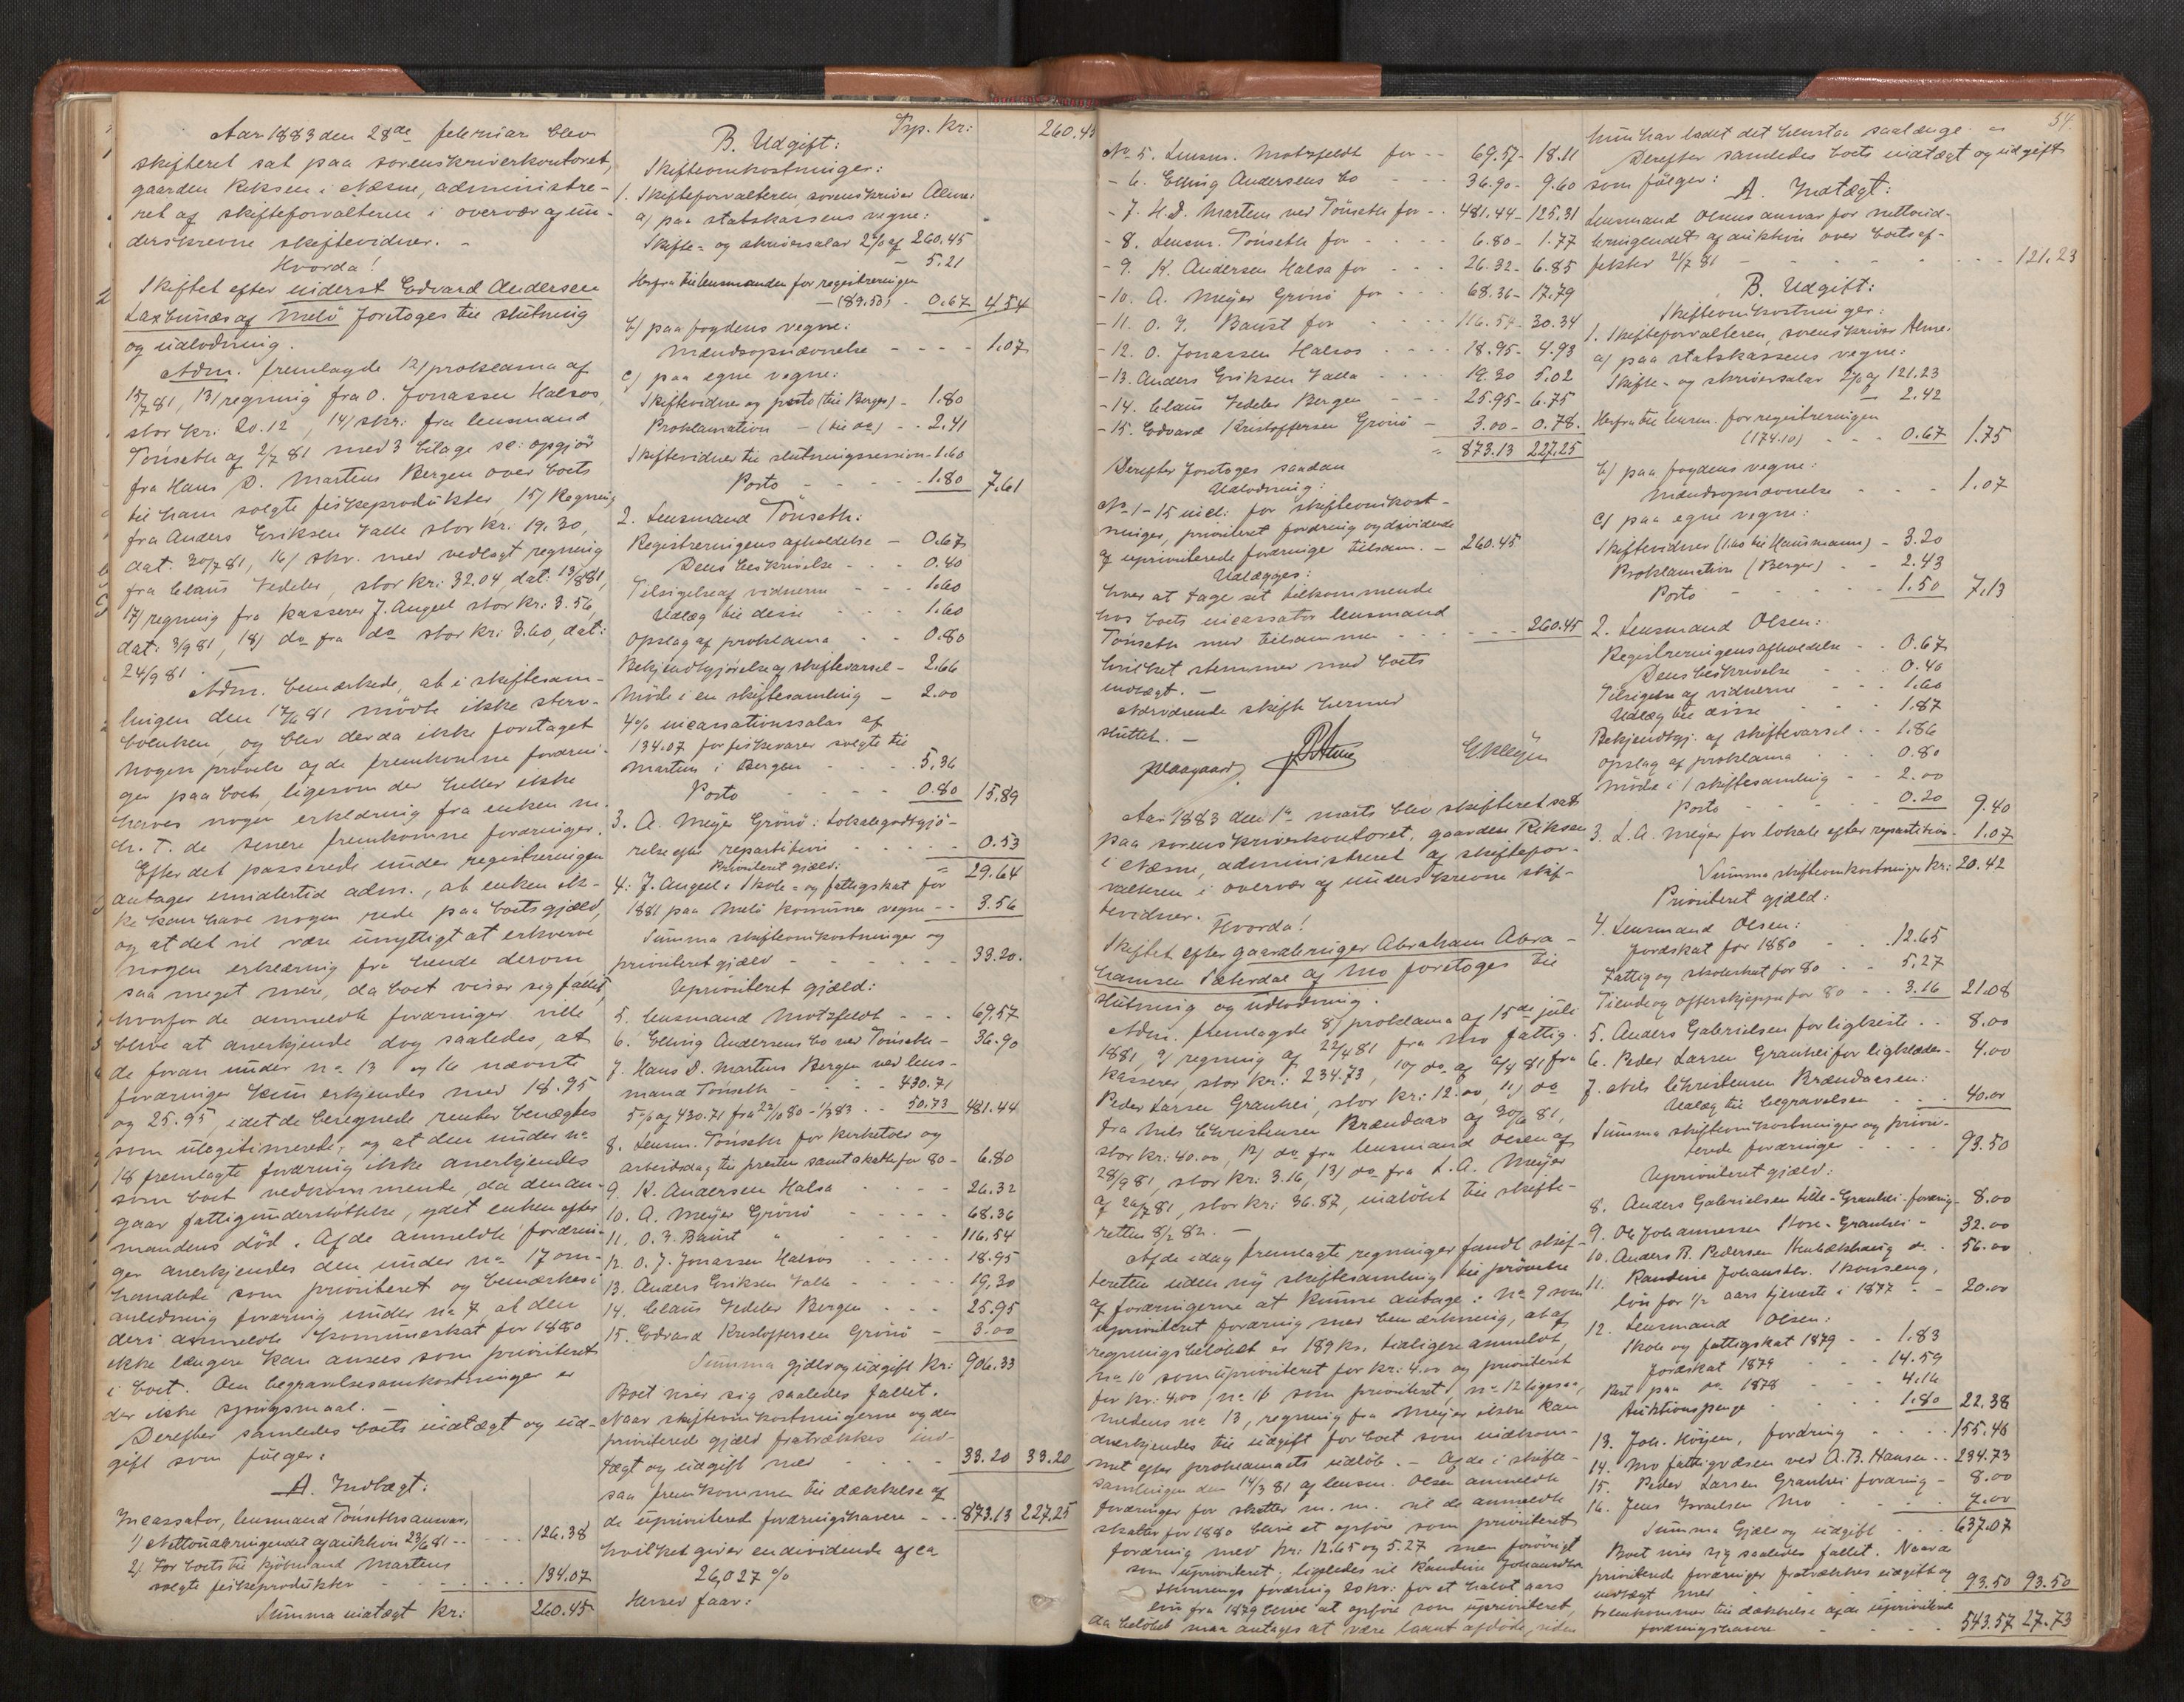 Aar 1883 den 28de februar blev
skifteret sat paa sorenskriverkontoret,
gaarden Riksen i Næsne, administre-
ret af skifteforvalteren i overvær af un-
derskrevne skiftevidner. -
Hvorda!
Skiftet efter inderst Edvard Andersen
Laxbunæs af Melö foretoges til slutning
og udlodning.
Adm. fremlagde 12) proklama af
15/7 81, 13) regning fra O. Jonassen Halsos,
stor kr: 20.12, 14) skr: fra lensmand
Tönseth af 2/7 81 med 3 bilage sc: opgjör
fra Hans D. Martens Bergen over boets
til ham solgte fiskeprodukter, 15) Regning
fra Anders Eriksen Valle stor kr. 19.30,
dat. 30/7 81, 16) skr. med vedlagt regning
fra Claus Vedeler, stor kr: 32.04 dat: 13/8 81,
17) regning fra kasserer J. Angell stor kr: 3.56,
dat: 3/9 81, 18) do fra do stor kr: 3.60, dat:
24/9 81.
Adm. bemærkede, at i skiftesam-
lingen den 17/6 81 mödte ikke sterv-
boenken, og blev der da ikke foretaget
nogen prövelse af de fremkomne fordrin-
ger paa boet, ligesom der heller ikke
haves nogen erklæring fra enken m.
h. t. de senere fremkomne fordringer.
Efter det passerede under registreringen
antager imidlertid adm., at enken ik-
ke kan have nogen rede paa boets gjæld,
og at det vil være unyttigt at erhverve
nogen erklæring fra hende derom
saa meget mere, da boet viser sig fallit,
hvorfor de anmeldte fordringer ville
blive at anerkjende dog saaledes, at
de foran under no 13 og 16 nævnte
fordringer kun erkjendes med 18.95
og 25.95, idet de beregnede renter benægtes
som ulegitimerede, og at den under no
18 fremlagte fordring ikke anerkjendes
som boet vedkommende, da den an-
gaar fattigunderstöttelse, ydet enken efter
mandens död. Af de anmeldte fordrin-
ger anerkjendes den under no 17 om-
handlede som prioriteret og bemærkes i
anledning fordring under no 7 at den
deri anmeldte kommuneskat for 1880
ikke længere kan ansees som prioriteret
i boet. Om begravelsesomkostninger er
der ikke spörgsmaal. -
Derefter samledes boets indtægt og ud-
gift som fölger:
A. Indtægt:
Incassator, lensmand Tönseths ansvar,
1) Nettoudbringendet af auktion 23/6 81 - - 126.38
2) For boets til kjöbmand Martens
solgte fiskeprodukter - - - 134.07
Summa indtægt kr: 260.45
Trsp. kr: 260.45
B. Udgift:
Skifteomkostninger:
1. Skifteforvalteren sorenskriver Alme:
a) paa statskassens vegne:
Skifte- og skriversalar 2% af 260.45
- 5.21
Herfra til lensmanden for registreringen
- (89.50) - 0.67 4.54
b) paa fogdens vegne:
Mændsopnævnelse - - - - 1.07
c) paa egne vegne:
Skiftevidner og porto (til Berger) - 1.80
Proklamation - (til do) - - 2.41
Skiftevidner til slutningssession - 1.60
Porto - - - - 1.80 7.61
2. Lensmand Tönseth:
Registreringens afholdelse - 0.67
Dens beskrivelse - - - 0.40
Tilsigelse af vidnerne - - 1.60
Udlæg til disse - - - 1.60
Opslag af proklama - - 0.80
Bekjendtgjörelse af skiftevarsel - 2.66
Möde i en skiftesamling - 2.00
4% incassationssalar af
134.07 for fiskevarer solgte til
Martens i Bergen - - - 5.36
Porto - - - - 0.80 15.89
3. A. Meyer Grönö: Lokalegodtgjö-
relse efter repartition - - - - 0.53
29.64
Prioriteret gjæld:
4. J. Angell: Skole- og fattigskat for
1881 paa Melö kommunes vegne - - 3.56
Summa skifteomkostninger og
prioriteret gjæld - - - - 33.20.
Uprioriteret gjæld:
5. Lensmand Motzfeldt - - - 69.57
6. Elling Andersens bo ved Tönseth - 36.90
7. Hans D. Martens Bergen ved lens-
mand Tönseth - - - 430.71
5% af 430.71 fra 23/10 80 - 1/3 83 - - 50.73 481.44
8. Lensm. Tönseth for kirketold og
arbeidsdag til presten samt skat for 80 - 6.80
9. K. Andersen Halsa - - - 26.32
10. A. Meyer Grönö - - - - 68.36
11. O. J. Baust " - - - 116.54
12. O. J. Jonassen Halsos - - - 18.95
13. Anders Eriksen Valle - - - 19.30
14. Claus Vedeler Bergen - - - 25.95
15. Edvard Kristoffersen Grönö - 3.00
Summa gjæld og udgift kr: 906.33
Boet viser sig saaledes fallit.
Naar skifteomkostningerne og den
prioriterede gjæld fratrækkes ind-
tægt og udgift med - - - 33.20 33.20
saa fremkommer til dækkelse af
de uprioriterede fordringshavere - - 873.13 227.25
hvilket giver en dividende af ca
26,027 %
Herved faar:
54.
No 5. Lensm. Motzfeldt for - - 69.57 - 18.11
- 6. Elling Andersens bo - - - 36.90 - 9.60
- 7. H. D. Martens ved Tönseth for - - 481.44 - 125.31
- 8. Lensm. Tönseth for - - - 6.80 - 1.77
- 9. K. Andersen Halsa for - - - 26.32 - 6.85
- 10. A. Meyer Grönö for - - - 68.36 - 17.79
- 11. O. J. Baust for - - - 116.54 - 30.34
- 12. O. Jonassen Halsos - - - 18.95 - 4.93
- 13. Anders Eriksen Valla - - - 19.30 5.02
- 14. Claus Vedeler Bergen - - - 25.95 - 6.75
- 15. Edvard Kristoffersen Grönö - 3.00 - 0.78.
873.13 227.25
Derefter foretoges saadan
Udlodning:
No 1 - 15 incl: for skifteomkost-
ninger, prioriteret fordring og dividende
af uprioriterede fordringer tilsam. - 260.45
Udlægges:
hver at tage sit tilkommende
hos boets incassator lensmand
Tönseth med tilsammen - - - 260.45
hvilket stemmer med boets
indtægt. -
Nærværende skifte hermed
sluttet. -
Aar 1883 den 1ste marts blev skifteret sat
paa sorenskriverkontoret, gaarden Riksen
i Næsne, administreret af skiftefor-
valteren i overvær af underskrevne skif-
tevidner.
Hvorda!
Skiftet efter gaardbruger Abraham Abra-
hamsen Sæterdal af Mo foretoges til
slutning og udlodning.
Adm. fremlagde 8) proklama af 15de juli
1881, 9) regning af 22/4 81 fra Mo fattig-
kasserer, stor kr: 234.73, 10) do af 6/4 81 fra
Peder Larsen Granhei, stor kr: 12.00, 11) do
fra Nils Christensen Brændaas af 30/6 81,
stor kr: 40.00, 12) do fra lensmand Olsen af
28/9 81, stor kr: 3.16, 13) do fra L. A. Meyer
af 20/7 81, stor kr: 36.87, indlöbet til skifte-
retten 8/2 82. -
Af de idag fremlagte regninger fandt skif-
teretten uden ny skiftesamling til prövelse
af fordringerne at kunne antage: No 9 som
uprioriteret fordring med bemærkning, at af
regningsbelöbet er 189 kr. tidligere anmeldt,
No 10 som uprioriteret for kr: 4.00 og prioriteret
for kr: 4.00, No 11 som prioriteret, No 12 ligesaa,
medens No 13, regning fra Meyer ikke kan
anerkjendes til udgift for boet som indkom-
met efter proklamaets udlöb. - Af de i skifte-
samlingen den 14/3 81 af lensm. Olsen anmeldte
fordringer for skatter m. m. vil de anmeldte
skatter for 1880 blive at opföre som prioriteret
fordring med kr: 12.65 og 5.27 men forövrigt
som uprioriteret; ligeledes vil Randine Johansdtr.
Skonsengs fordring 20 kr: for et halvt aars
lön fra 1879 blive at opföre som uprioriteret,
da belöbet maa antages at være laant afdöde, siden
hun har ladet det henstaa saalænge. -
Derefter samledes boets indtægt og udgift
som fölger:
A. Indtægt:
Lensmand Olsens ansvar for nettoud-
bringendet af auktion over boets ef-
fekter 21/7 81 - - - - 121.23
B. Udgift:
Skifteomkostninger:
1. Skifteforvalteren, sorenskriver Alme:
a) paa statskassens vegne:
Skifte- og skriversalar 2% af 121.23
- 2.42
Herfra til lensm. for registreringen
(174.10) - - - 0.67 1.75
b) paa fogdens vegne:
Mændsopnævnelse - - - 1.07
c) paa egne vegne:
Skiftevidner (1.60 til Hausmann) - 3.20
Proklamation (Berger) - - 2.43
Porto - - - - 1.50 7.13
2. Lensmand Olsen:
Registreringens afholdelse - - 0.67
Dens beskrivelse - - 0.40
Tilsigelse af vidnerne - - - 1.60
Udlæg til disse - - - 1.87
Bekjendtgj. af skiftevarsel - - 1.86
Opslag af proklama - - 0.80
Möde i 1 skiftesamling - - 2.00
Porto - - - - 0.20 9.40
3. L. A. Meyer for lokale efter repartition - 1.07
Summa skifteomkostninger kr: 20.42
Prioriteret gjæld:
4. Lensmand Olsen:
Jordskat for 1880 - - 12.65
Fattig og skoleskat for 80 - - 5.27
Tiende og offerskjeppe for 80 - - 3.16 21.08
5. Anders Gabrielsen for ligkiste - - 8.00
6. Peder Larsen Granhei for ligklæder - 4.00
7. Nils Christensen Brændaasen:
Udlæg til begravelsen - - - 40.00
Summa skifteomkostninger og priori-
terede fordringer - - - 93.50
Uprioriteret gjæld:
8. Anders Gabrielsen Lille-Granhei - fordring - 8.00
9. Ole Johannessen Store-Granhei - 32.00
10. Anders B. Pedersen do - 56.00
11. Randine Johansdtr. Skonseng,
lön for 1/2 aars tjeneste i 1877 - - 20.00
12. Lensmand Olsen:
Skole og fattigskat 1879 - - 1.83
Jordskat 1879 - - 14.59
Rest paa do 1878 - - 4.16
Auktionspenge - - - 1.80 22.38
13. Joh. Höyen, fordring - - - 155.46
14. Mo fattigvæsen ved A. B. Hansen - - 234.73
15. Peder Larsen Granhei fordring - 8.00
16. Jens Israelsen Mo - - - 7.00
Summa Gjæld og udgift - - - 637.07
Boet viser sig saaledes fallit. Naar de
prioriterede fordringer fratrækkes udgift og
indtægt med - - - 93.50 93.50
fremkommer til dækkelse af de uprioriterede
fordringshavere - - - 543.57 27.73